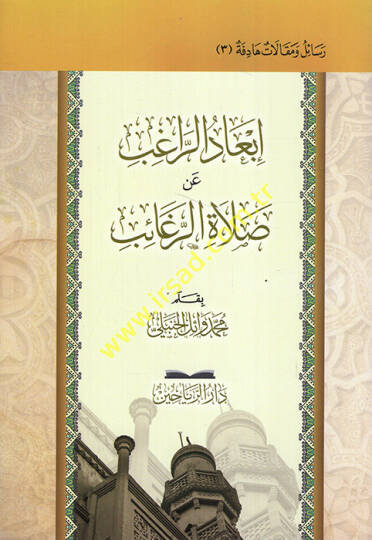 رَسَائِلُ وَمَقَالَاتٌ هَادِفَةٌ (٣)
إِبْعَادُ الرَّاغِبِ
عَن
صَلَاةِ الرَّغَائِبِ
بِقَلَم
محمد وائل الحنبلي
دَارُ الرَّيَاحِين
www.irsad.com.tr